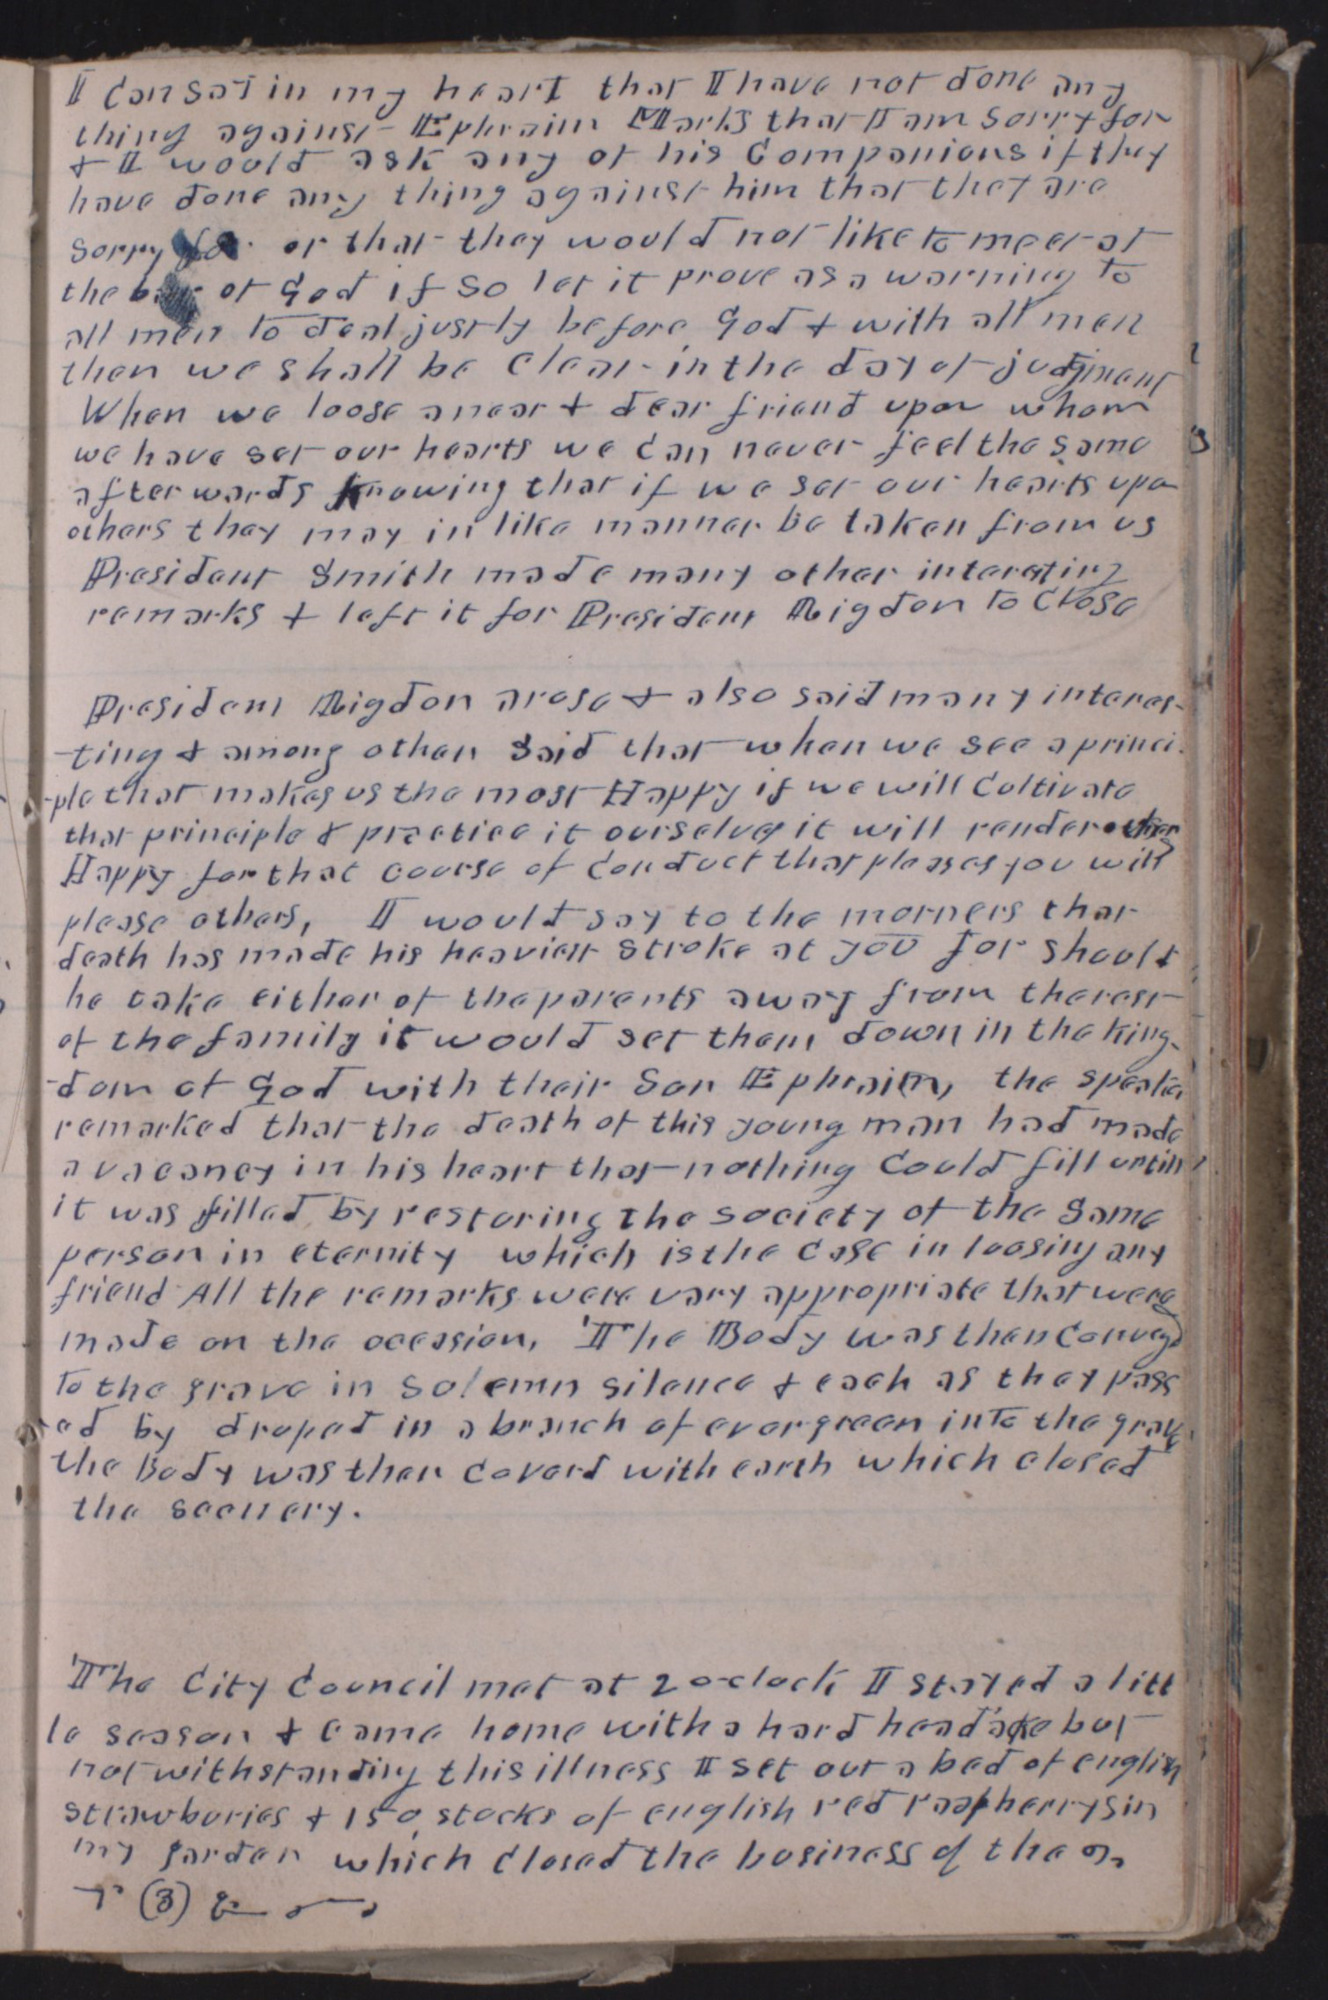 I can say in my heart that I have not done any
thing against Ephraim Marks that I am sorry for
& I would ask any of his Companions if they
have done any thing against him that they are
sorry for or that they would not like to meet at
the bar of God if so let it prove as a warning to
all men to deal justly before God & with all men
then we shall be Clear in the day of judgment
When we loose a near & dear friend upon whom
we have set our hearts we can never feel the same
afterwards knowing that if we set our hearts upon
others they may in like manner be taken from us
President Smith made many other interesting
remarks & left it for President Rigdon to Close
President Rigdon arose & also said many interes-
-ting & among other said that when we see a princi-
-ple that makes us the most Happy if we will Cultivate
that principle & practice it ourselves it will render others
Happy for that course of Conduct that pleases you will
please others, I would say to the morners that
death has made his heaviest stroke at you for should
he take either of the parents away from the rest
of the family it would set them down in the king-
-dom of God with their Son Ephraim, the speaker
remarked that the death of this young man had made
a vacancy in his heart that nothing Could fill untill
it was filled by restoring the society of the same
person in eternity which is the Case in loosing any
friend All the remarks were vary appropriate that were
made on the occasion, The Body was then Conveyd
to the grave in solemn silence & each as they pass
ed by droped in a branch of evergreen into the grave
the Body was then Coverd with earth which closed
the scenery.
The City Council met at 2 oclock I stayed a litt
le season & came home with a hard headake but
notwithstanding this illness I set out a bed of english
strawburies & 150 stocks of english red raspherrys in
my garden which Closed the business of the
(3)